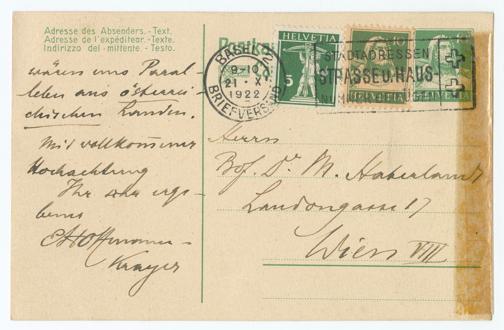 Adresse des Absenders. - Text.
Adresse de l'expéditeur. - Texte.
Indirizzo del mittente. - Testo.
wären uns Paral-
lelen aus österrei-
chischen Landen.
Mit vollkommener
Hochachtung
Ihr sehr erge-
bener
EHoffmann-
Krayer
Postkarte
BASEL
9-10
21. X.
1922
BRIEFVERSAND
HELVETIA
5
STADTADRESSEN
STRASSE U. HAUS-
HELVETIA
HELVETIA
Herrn
Prof. Dr. M. Haberlandt
Laudongasse 17
Wien VIII